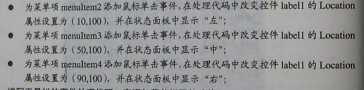 ● 为菜单项 menuItem2 添加鼠标单击事件,在处理代码中改变控件 label1 的 Location
属性设置为 (10,100),并在状态面板中显示“左”;
● 为菜单项 menuItem3 添加鼠标单击事件,在处理代码中改变控件 label1 的 Location
属性设置为 (50,100),并在状态面板中显示“中”;
● 为菜单项 menuItem4 添加鼠标单击事件,在处理代码中改变控件 label1 的 Location
属性设置为 (90,100),并在状态面板中显示“右”;